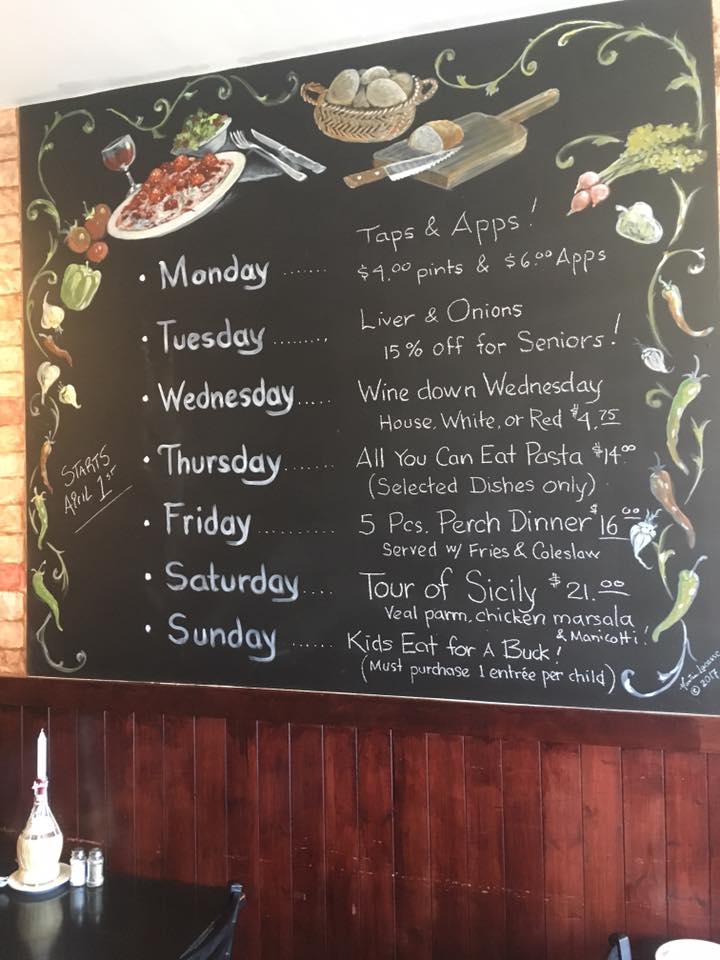 Taps & Apps!
• Monday ....... $4.00 pints & $6.00 Apps
Liver & Onions
• Tuesday ........, 15% off for Seniors!
• Wednesday..... Wine down Wednesday
House, White, or Red $4.75
STARTS
April 1st
• Thursday....... All You Can Eat Pasta $14.00
(Selected Dishes only)
• Friday .......... 5 Pcs. Perch Dinner $16.00
Served w/ Fries & Coleslaw
• Saturday .... Tour of Sicily $21.00
Veal parm, chicken marsala
& Manicotti!
• Sunday ...... Kids Eat for A Buck!
(Must purchase 1 entrée per child)
© 2017